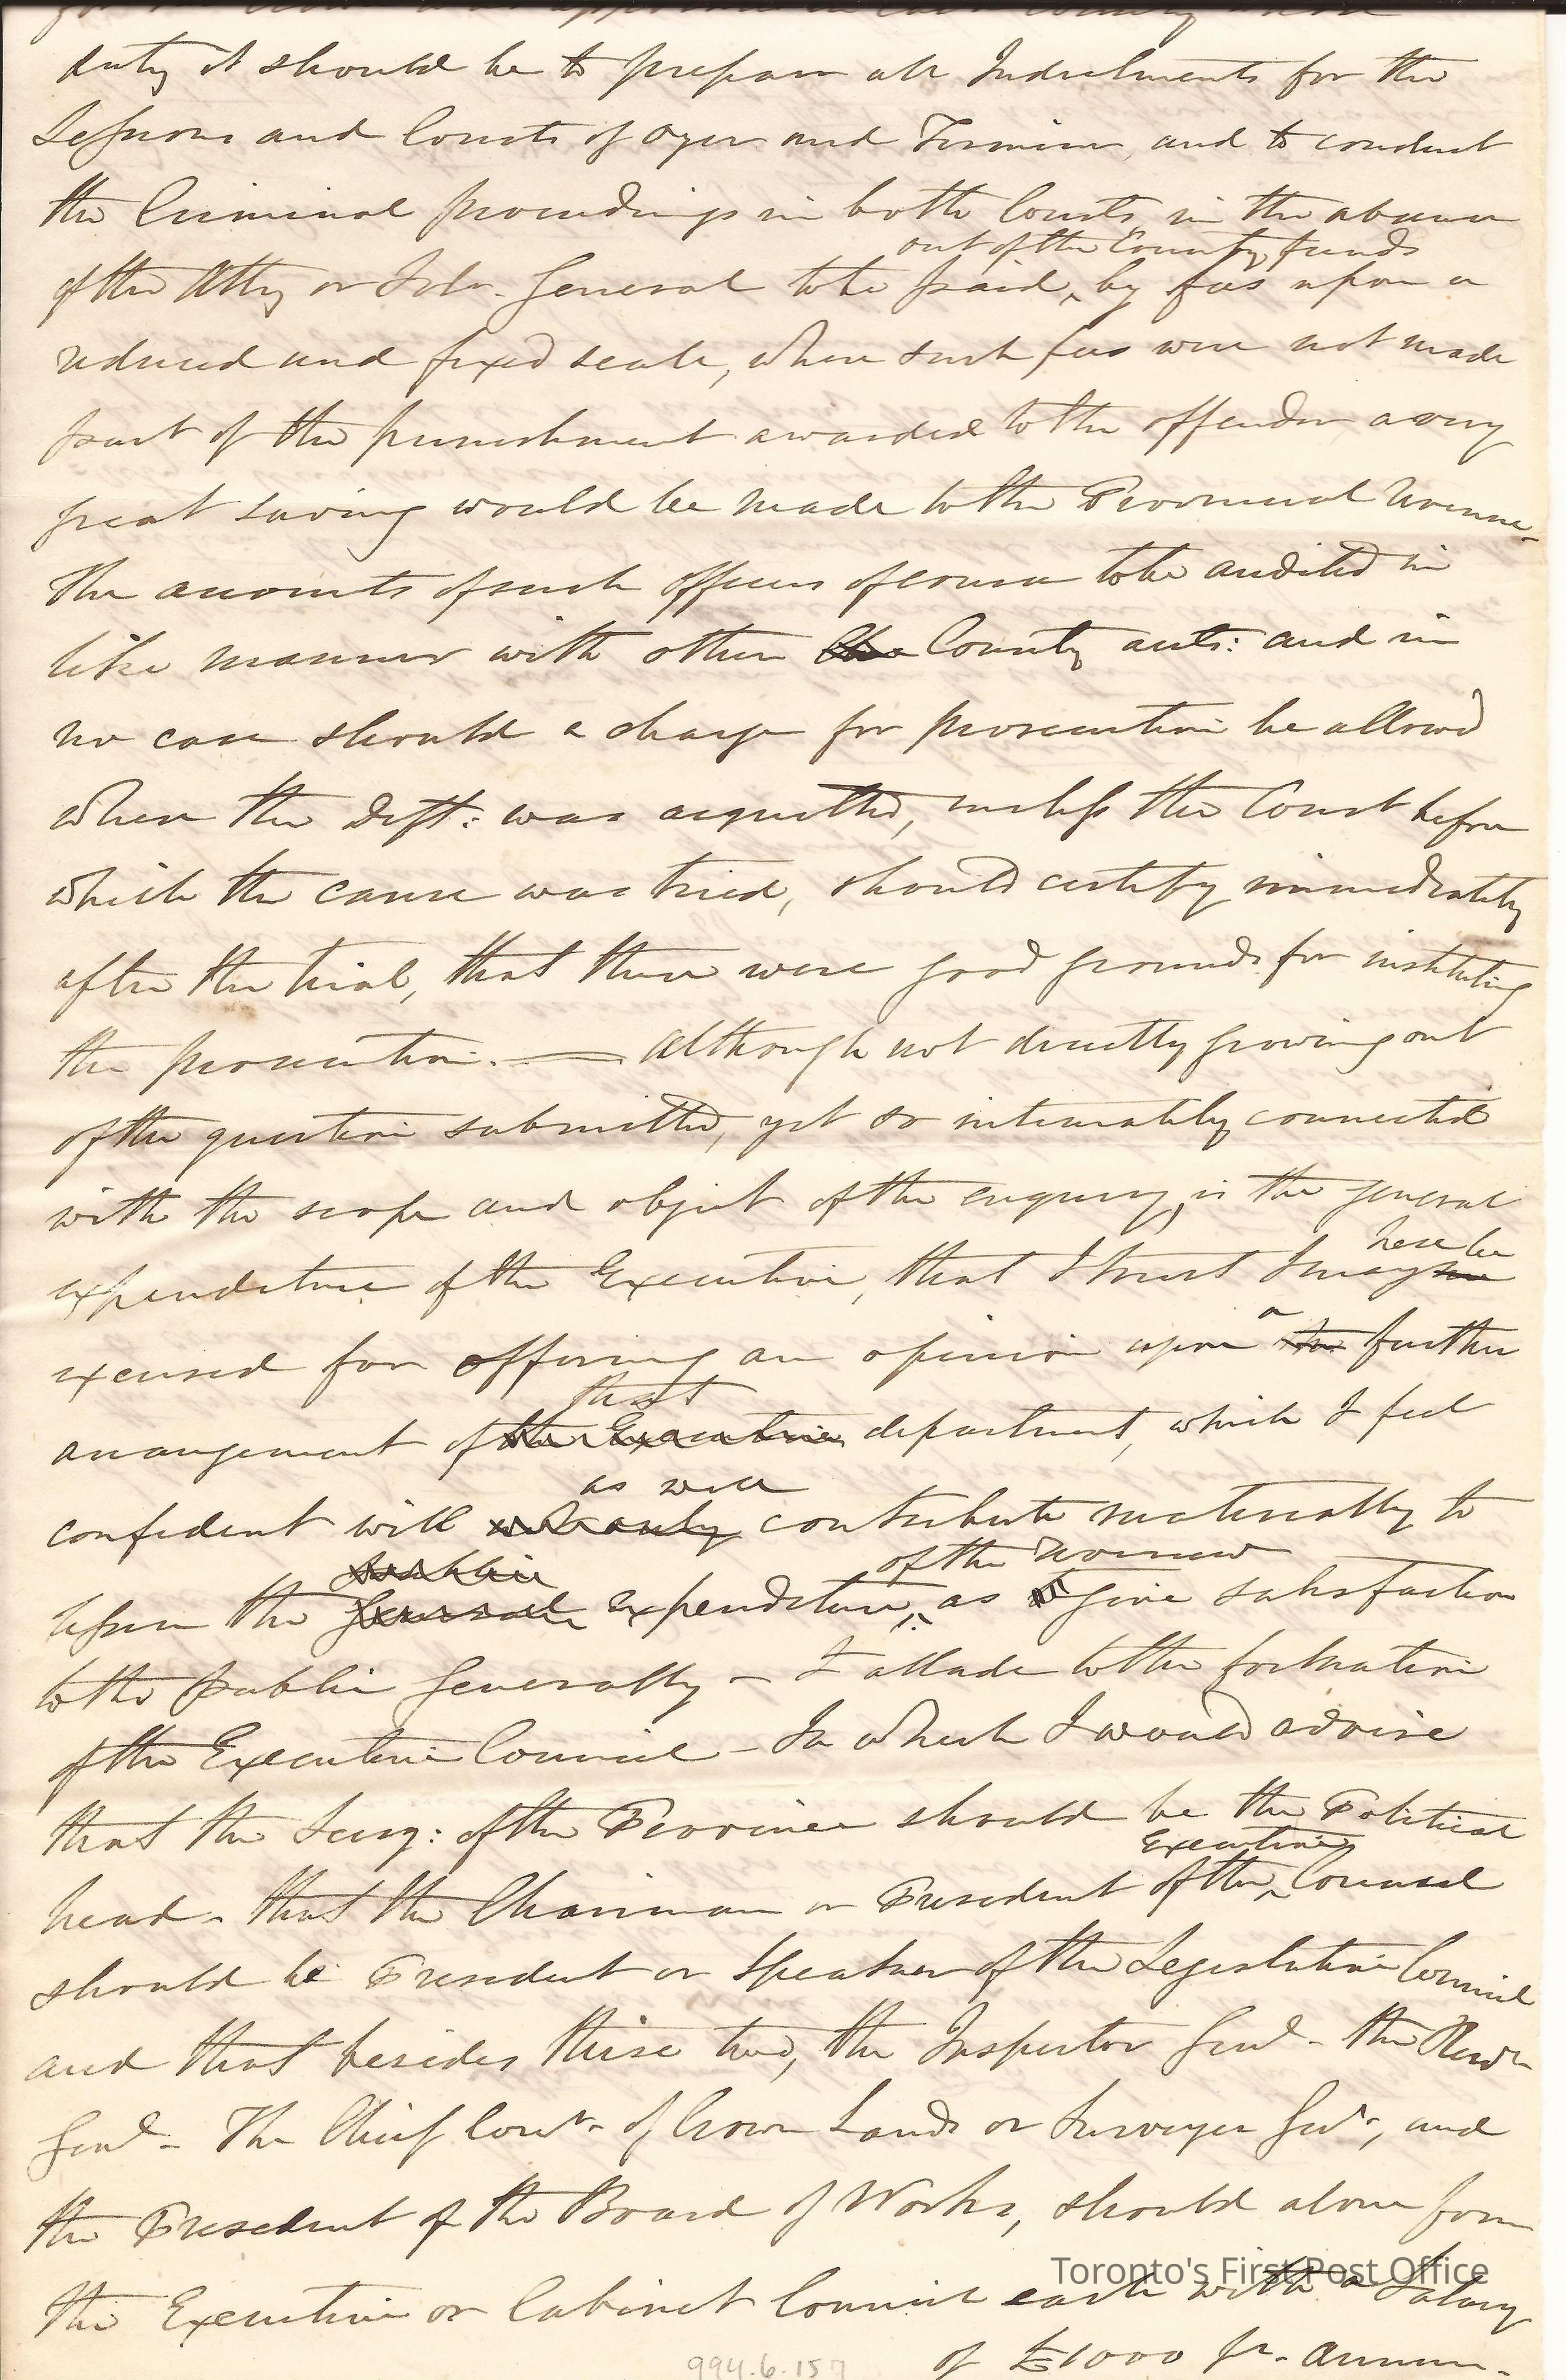 duty it should be to prepare all Indictments for the
Sessions and Courts of Oyer and Terminer, and to conduct
the Criminal proceedings in both Courts in the absence
out of the County funds
of the Atty or Solr. General to be paid, by fees upon a
reduced and fixed scale, where such fees were not made
part of the punishment awarded to the offender a very
great saving would be made to the Provincial revenue -
The accounts of such officers of course to be audited in
like manner with other County accts: and in
no case should a charge for prosecution be allowed
when the Deft: was acquitted, unless the Court before
which the cause was tried, should certify immediately
after the trial, that there were good grounds for instituting
the prosecution. — Although not directly growing out
of the question submitted, yet so intimately connected
with the scope and object of the enquiry, is the general
here be
expenditure of the Executive, that I trust I may be
excused for offering an opinion upon a the further
that
arrangement of the Executive department, which I feel
as well
confident will not only contribute materially to
public of the revenue
lessen the general expenditure, as to give satisfaction
to the public generally - I allude to the formation
of the Executive Council - In which I would advise
that the Secry: of the Province should be the Political
Executive
head - that the Chairman or President of the Council
should be President or Speaker of the Legislative Council
and that besides these two, the Inspector Genl - the Recr
Genl - The Chief Comr. of Crown Lands or Surveyor Genl, and
the President of the Board of Works, should alone form
the Executive or Cabinet Council each with a Salary
of £1000 pr. annum.
Toronto's First Post Office
994.6.157